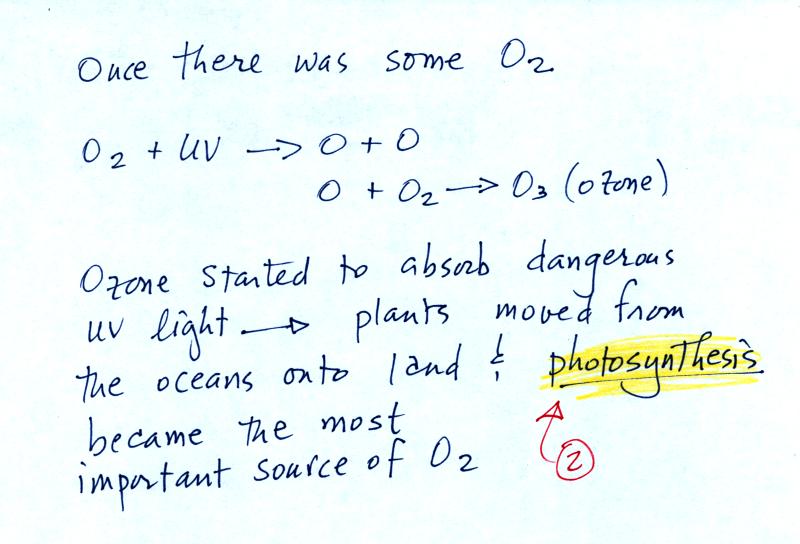 Once there was some O2
O2 + UV → O + O
O + O2 → O3 (ozone)
Ozone started to absorb dangerous
UV light → plants moved from
the oceans onto land & photosynthesis
became the most
important source of O2
2